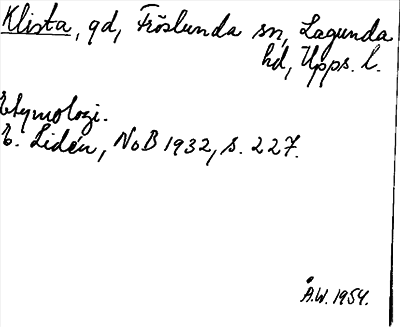 Klista, gd, Fröslunda sn, Lagunda
hd, Upps. l.
Etymologi.
E. Lidén, NoB 1932, s. 227.
Å.W. 1954.